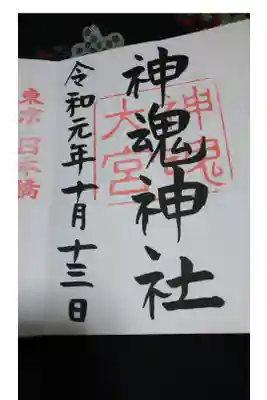 神魂神社
神魂
大宮
令和元年十月十三日
東京 日本橋